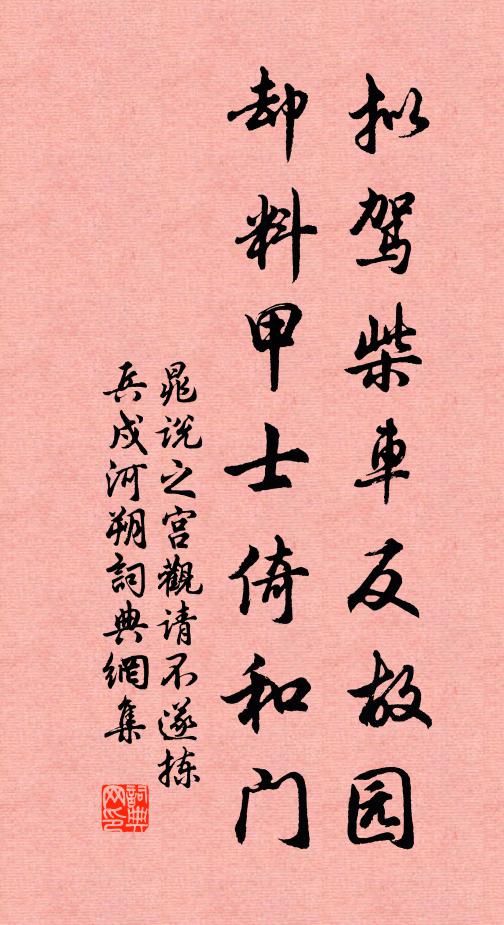 拟驾柴車反故园
却料甲士倚和门
晁说之宫觀请不遂拣
兵戍河朔詞典網集
詞典網印